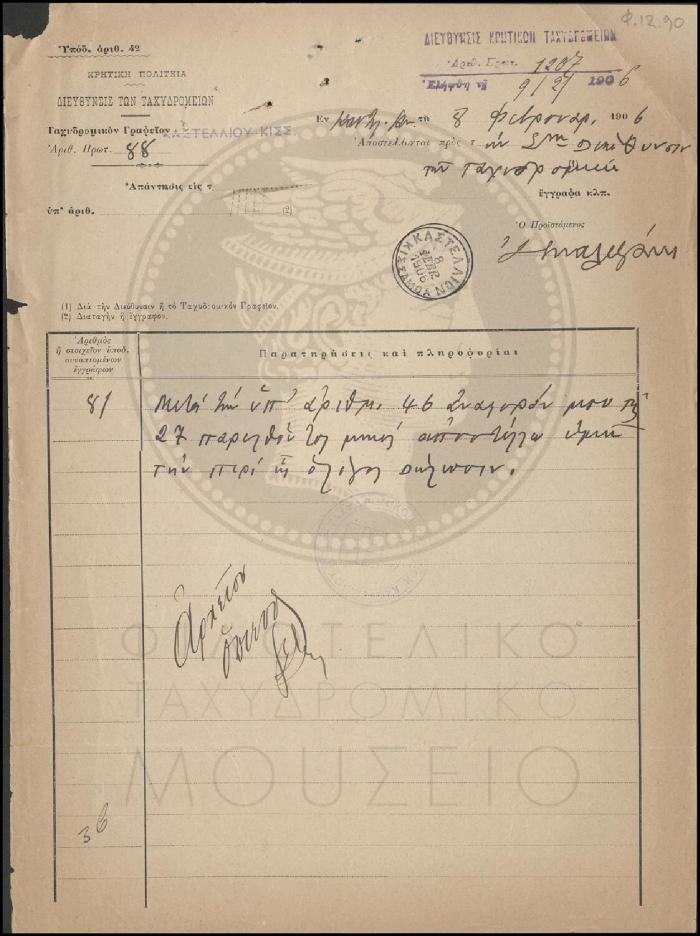 Φ.12.90
Ὑπόδ. ἀριθ. 42
ΔΙΕΥΘΥΝΣΙΣ ΚΡΗΤΙΚΩΝ ΤΑΧΥΔΡΟΜΕΙΩΝ
Ἀριθ. Πρωτ. 1207
Ἐλήφθη τῇ 9/2/ 1906
ΚΡΗΤΙΚΗ ΠΟΛΙΤΕΙΑ
ΔΙΕΥΘΥΝΣΙΣ ΤΩΝ ΤΑΧΥΔΡΟΜΕΙΩΝ
Ταχυδρομικὸν Γραφεῖον ΚΑΣΤΕΛΛΙΟΥ ΚΙΣΣ.
Ἀριθ. Πρωτ. 88
Ἐν τῇ 8 Φεβρουαρ. 1906
Ἀποστέλλονται πρὸς τὴν Διεύθυνσιν
ἔγγραφα κλπ.
Ἀπάντησις εἰς τ
ὑπ' ἀριθ. (2)
Ὁ Προϊστάμενος
ΚΑΣΤΕΛΛΙΟΝ
8 ΦΕΒΡ 1906
(1) Διὰ τὴν Διεύθυνσιν ἢ τὸ Ταχυδρομικὸν Γραφεῖον.
(2) Διαταγὴν ἢ ἔγγραφον.
Ἀριθμὸς
ἢ στοιχεῖον ὑποδ.
συναπτομένων
ἐγγράφων
Παρατηρήσεις καὶ πληροφορίαι
81
Μετὰ τὴν ὑπ' ἀριθμ. 46 ἀναφοράν μου τῆς
27 παρελθόντος μηνὸς ἀποστέλλω ὑμῖν
τὴν περὶ ἧς ὁ λόγος δήλωσιν.
Ἀρχεῖον
ΦΙΛΟΤΕΛΙΚΟ
ΤΑΧΥΔΡΟΜΙΚΟ
ΜΟΥΣΕΙΟ
36